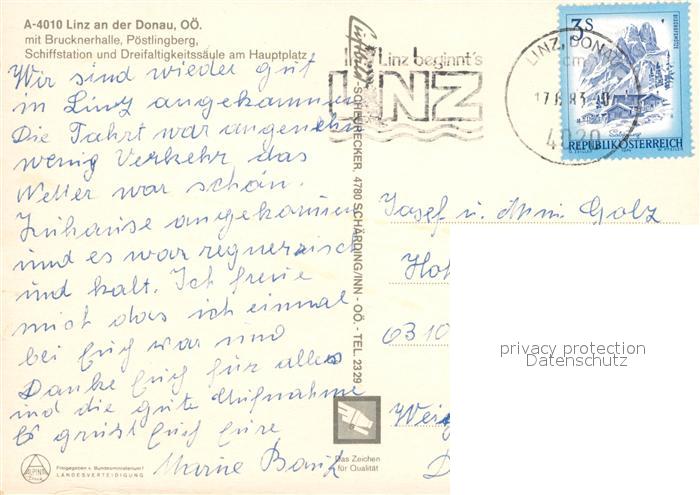 A-4010 Linz an der Donau, OÖ.
mit Brucknerhalle, Pöstlingberg,
Schiffstation und Dreifaltigkeitssäule am Hauptplatz
Wir sind wieder gut
in Linz angekommen
Die Fahrt war angenehm
wenig Verkehr das
Wetter war schön.
Zuhause angekommen
und es war regnerisch
und kalt. Ich freue
mich das ich einmal
bei Euch war und
Danke Euch für alles
und die gute Aufnahme
Es grüßt Euch Eure
Marie
Freigegeben v. Bundesministerium f.
LANDESVERTEIDIGUNG
ALPINA
SCHEURECKER, 4780 SCHÄRDING/INN - OÖ. - TEL. 2329
Das Zeichen
für Qualität
In Linz beginnt's
LINZ
LINZ, DONAU
17.6.83
4020
3 S
REPUBLIK ÖSTERREICH
Josef u. Golz
6310
privacy protection
Datenschutz